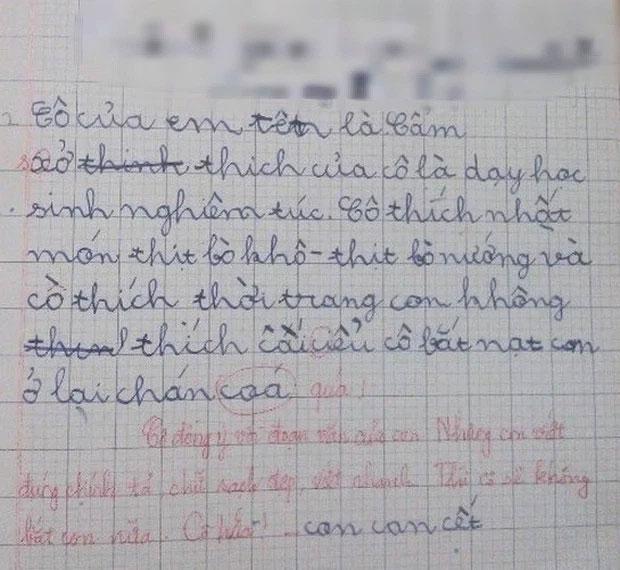 Cô của em tên là Cẩm
sở thinh thich của cô là dạy học
sinh nghiêm túc. Cô thích nhất
món thịt bò khô - thịt bò nướng và
cồ thích thời trang con không
thin thích cái cểu cô bắt nạt con
ở lại chán coá quá!
Cô đồng ý với đoạn văn của con Nhưng con viết
đúng chính tả chữ sạch đẹp, viết nhanh. Thì cô sẽ không
bắt con nữa. Cô hứa! con can cết